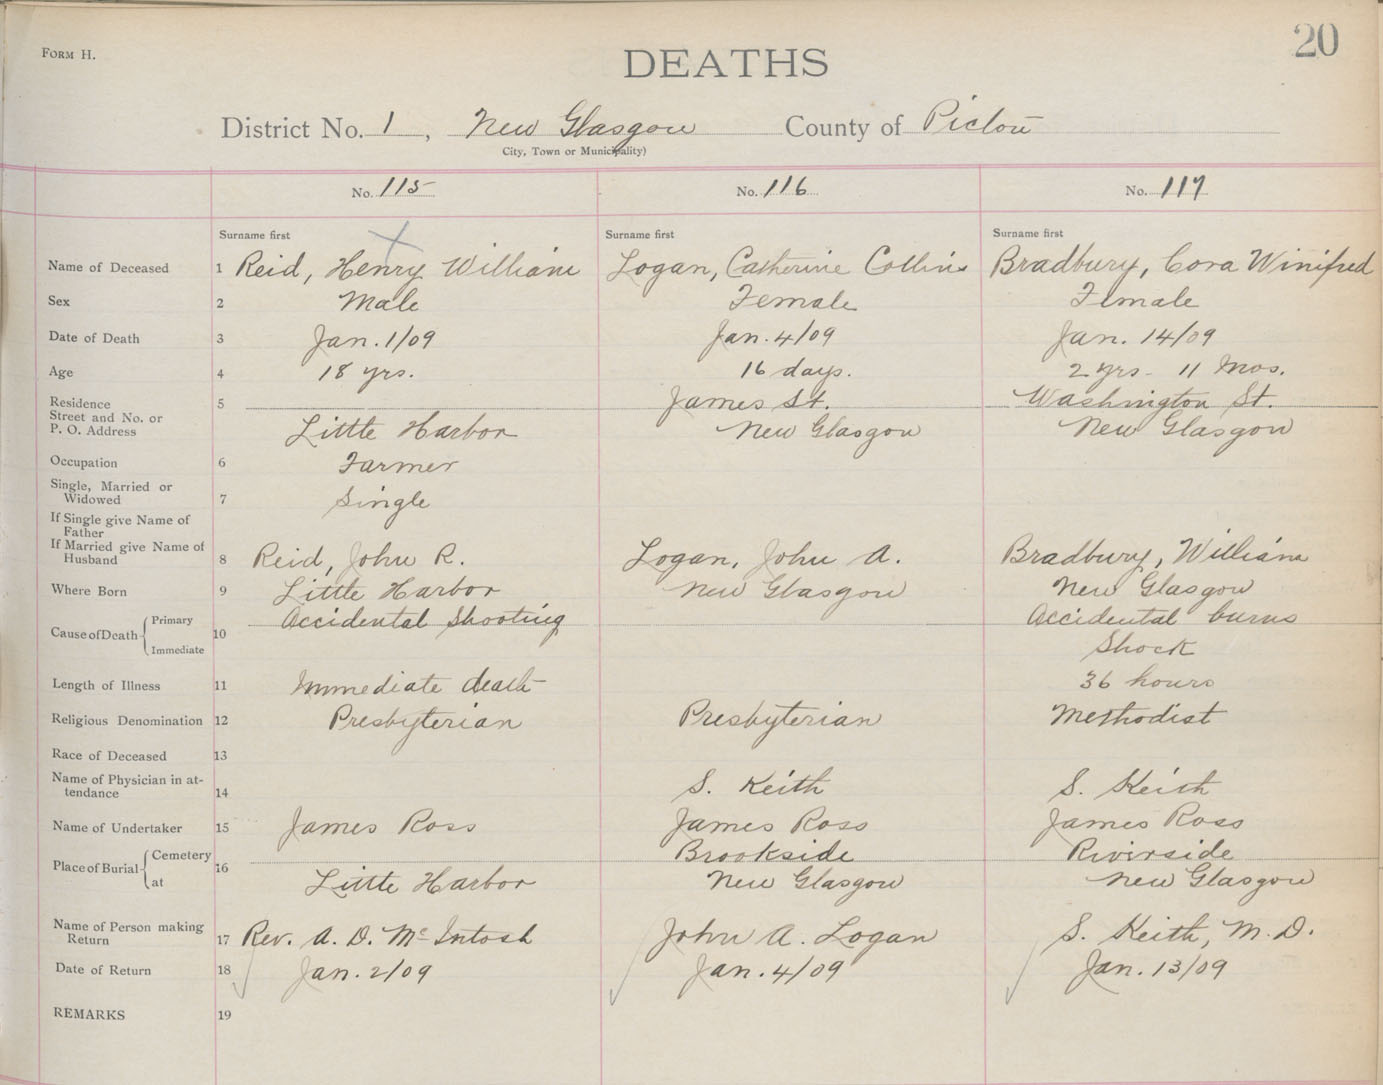 FORM H.
DEATHS
20
District No. 1, New Glasgow County of Pictou
City, Town or Municipality)
No. 115 No. 116 No. 117
Surname first Surname first Surname first
Name of Deceased 1 Reid, Henry William Logan, Catherine Collins Bradbury, Cora Winifred
Sex 2 Male Female Female
Date of Death 3 Jan. 1/09 Jan. 4/09 Jan. 14/09
Age 4 18 yrs. 16 days. 2 yrs - 11 Mos.
Residence 5 James St. Washington St.
Street and No. or
P. O. Address Little Harbor New Glasgow New Glasgow
Occupation 6 Farmer
Single, Married or
Widowed 7 Single
If Single give Name of
Father
If Married give Name of
Husband 8 Reid, John R. Logan, John A. Bradbury, William
Where Born 9 Little Harbor New Glasgow New Glasgow
Cause of Death Primary 10 Accidental Shooting Accidental burns
Immediate Shock
Length of Illness 11 Immediate death 36 hours
Religious Denomination 12 Presbyterian Presbyterian Methodist
Race of Deceased 13
Name of Physician in at-
tendance 14 S. Keith S. Keith
Name of Undertaker 15 James Ross James Ross James Ross
Place of Burial Cemetery 16 Brookside Riverside
at Little Harbor New Glasgow New Glasgow
Name of Person making
Return 17 Rev. A. D. McIntosh John A. Logan S. Keith, M.D.
Date of Return 18 Jan. 2/09 Jan. 4/09 Jan. 13/09
REMARKS 19